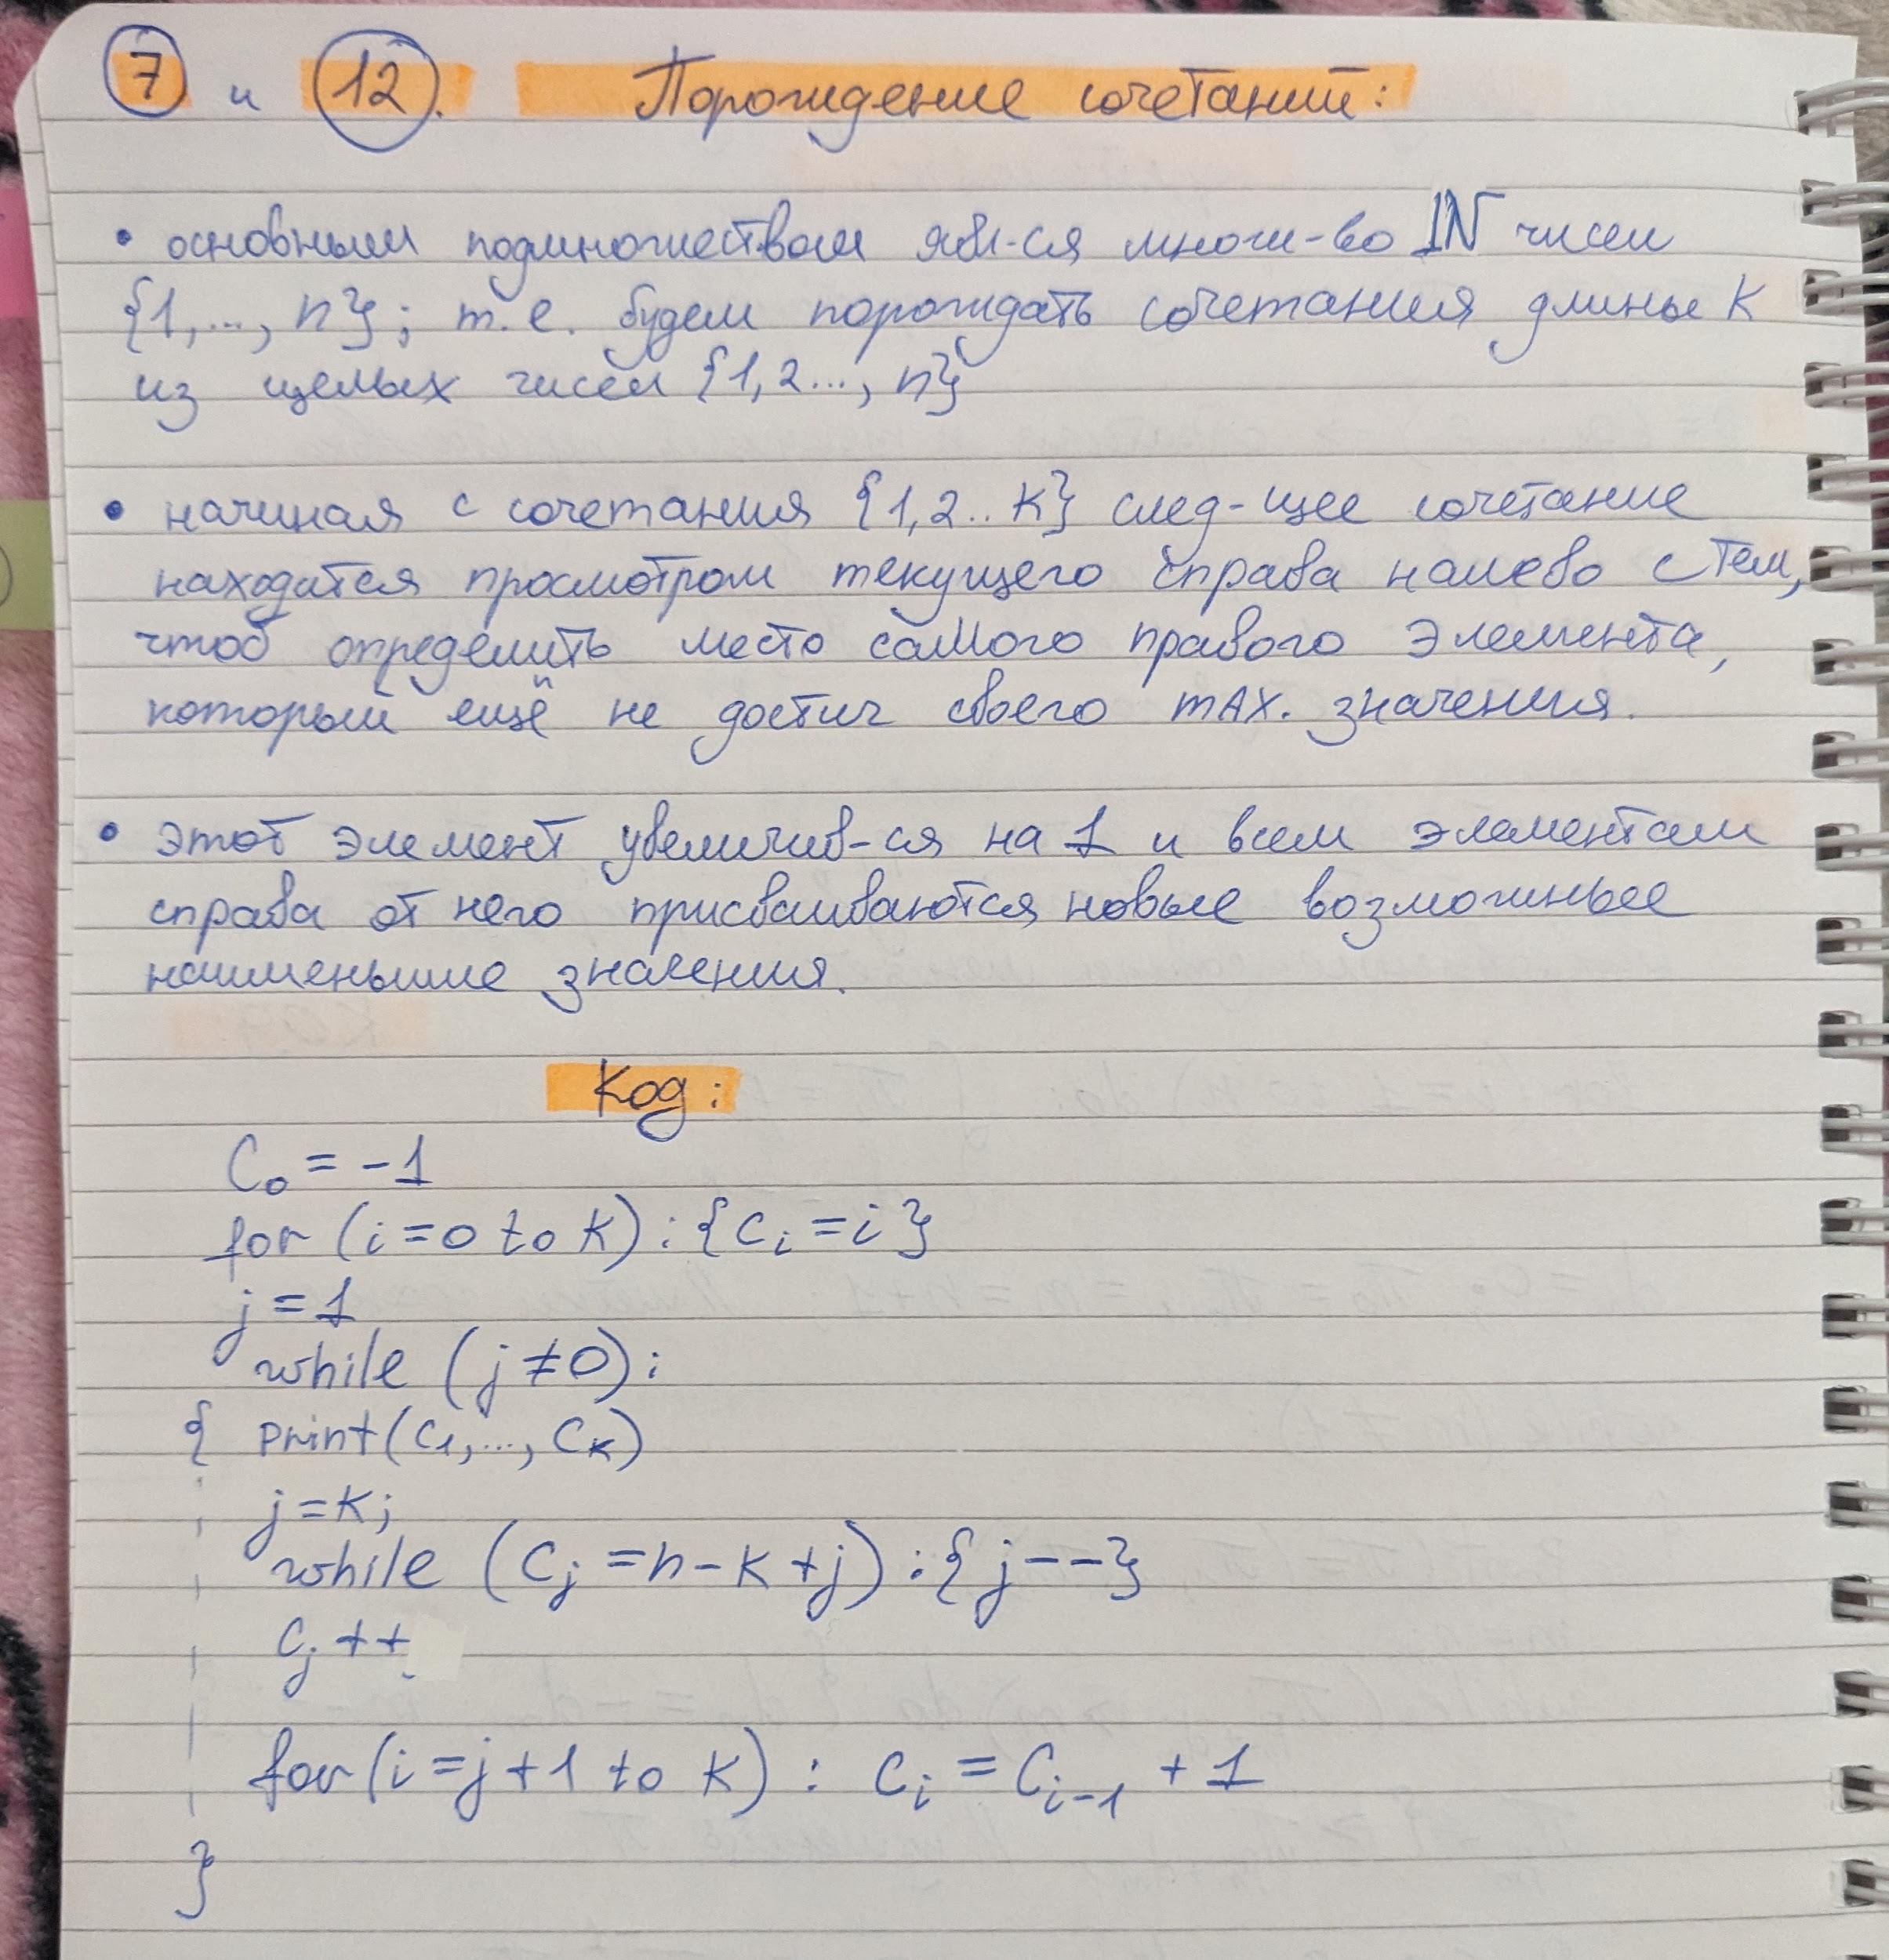 7 и 12. Порождение сочетаний:
• основным подмножеством явл-ся множ-во IN чисел
{1,..., n}; т.е. будем порождать сочетания длины K
из целых чисел {1,2..., n}
• начиная с сочетания {1,2.. K} след-щее сочетание
находится просмотром текущего справа налево с тем,
чтоб определить место самого правого элемента,
который ещё не достиг своего mAX. значения.
• этот элемент увеличив-ся на 1 и всем элементам
справа от него присваиваются новые возможные
наименьшие значения.
Код:
C₀ = -1
for (i=0 to K) : {Cᵢ = i}
j = 1
while (j ≠ 0) :
{ print(C₁,..., Cₖ)
j = K;
while (Cⱼ = n - K + j) : {j--}
Cⱼ ++
for (i = j + 1 to K) : Cᵢ = Cᵢ₋₁ + 1
}